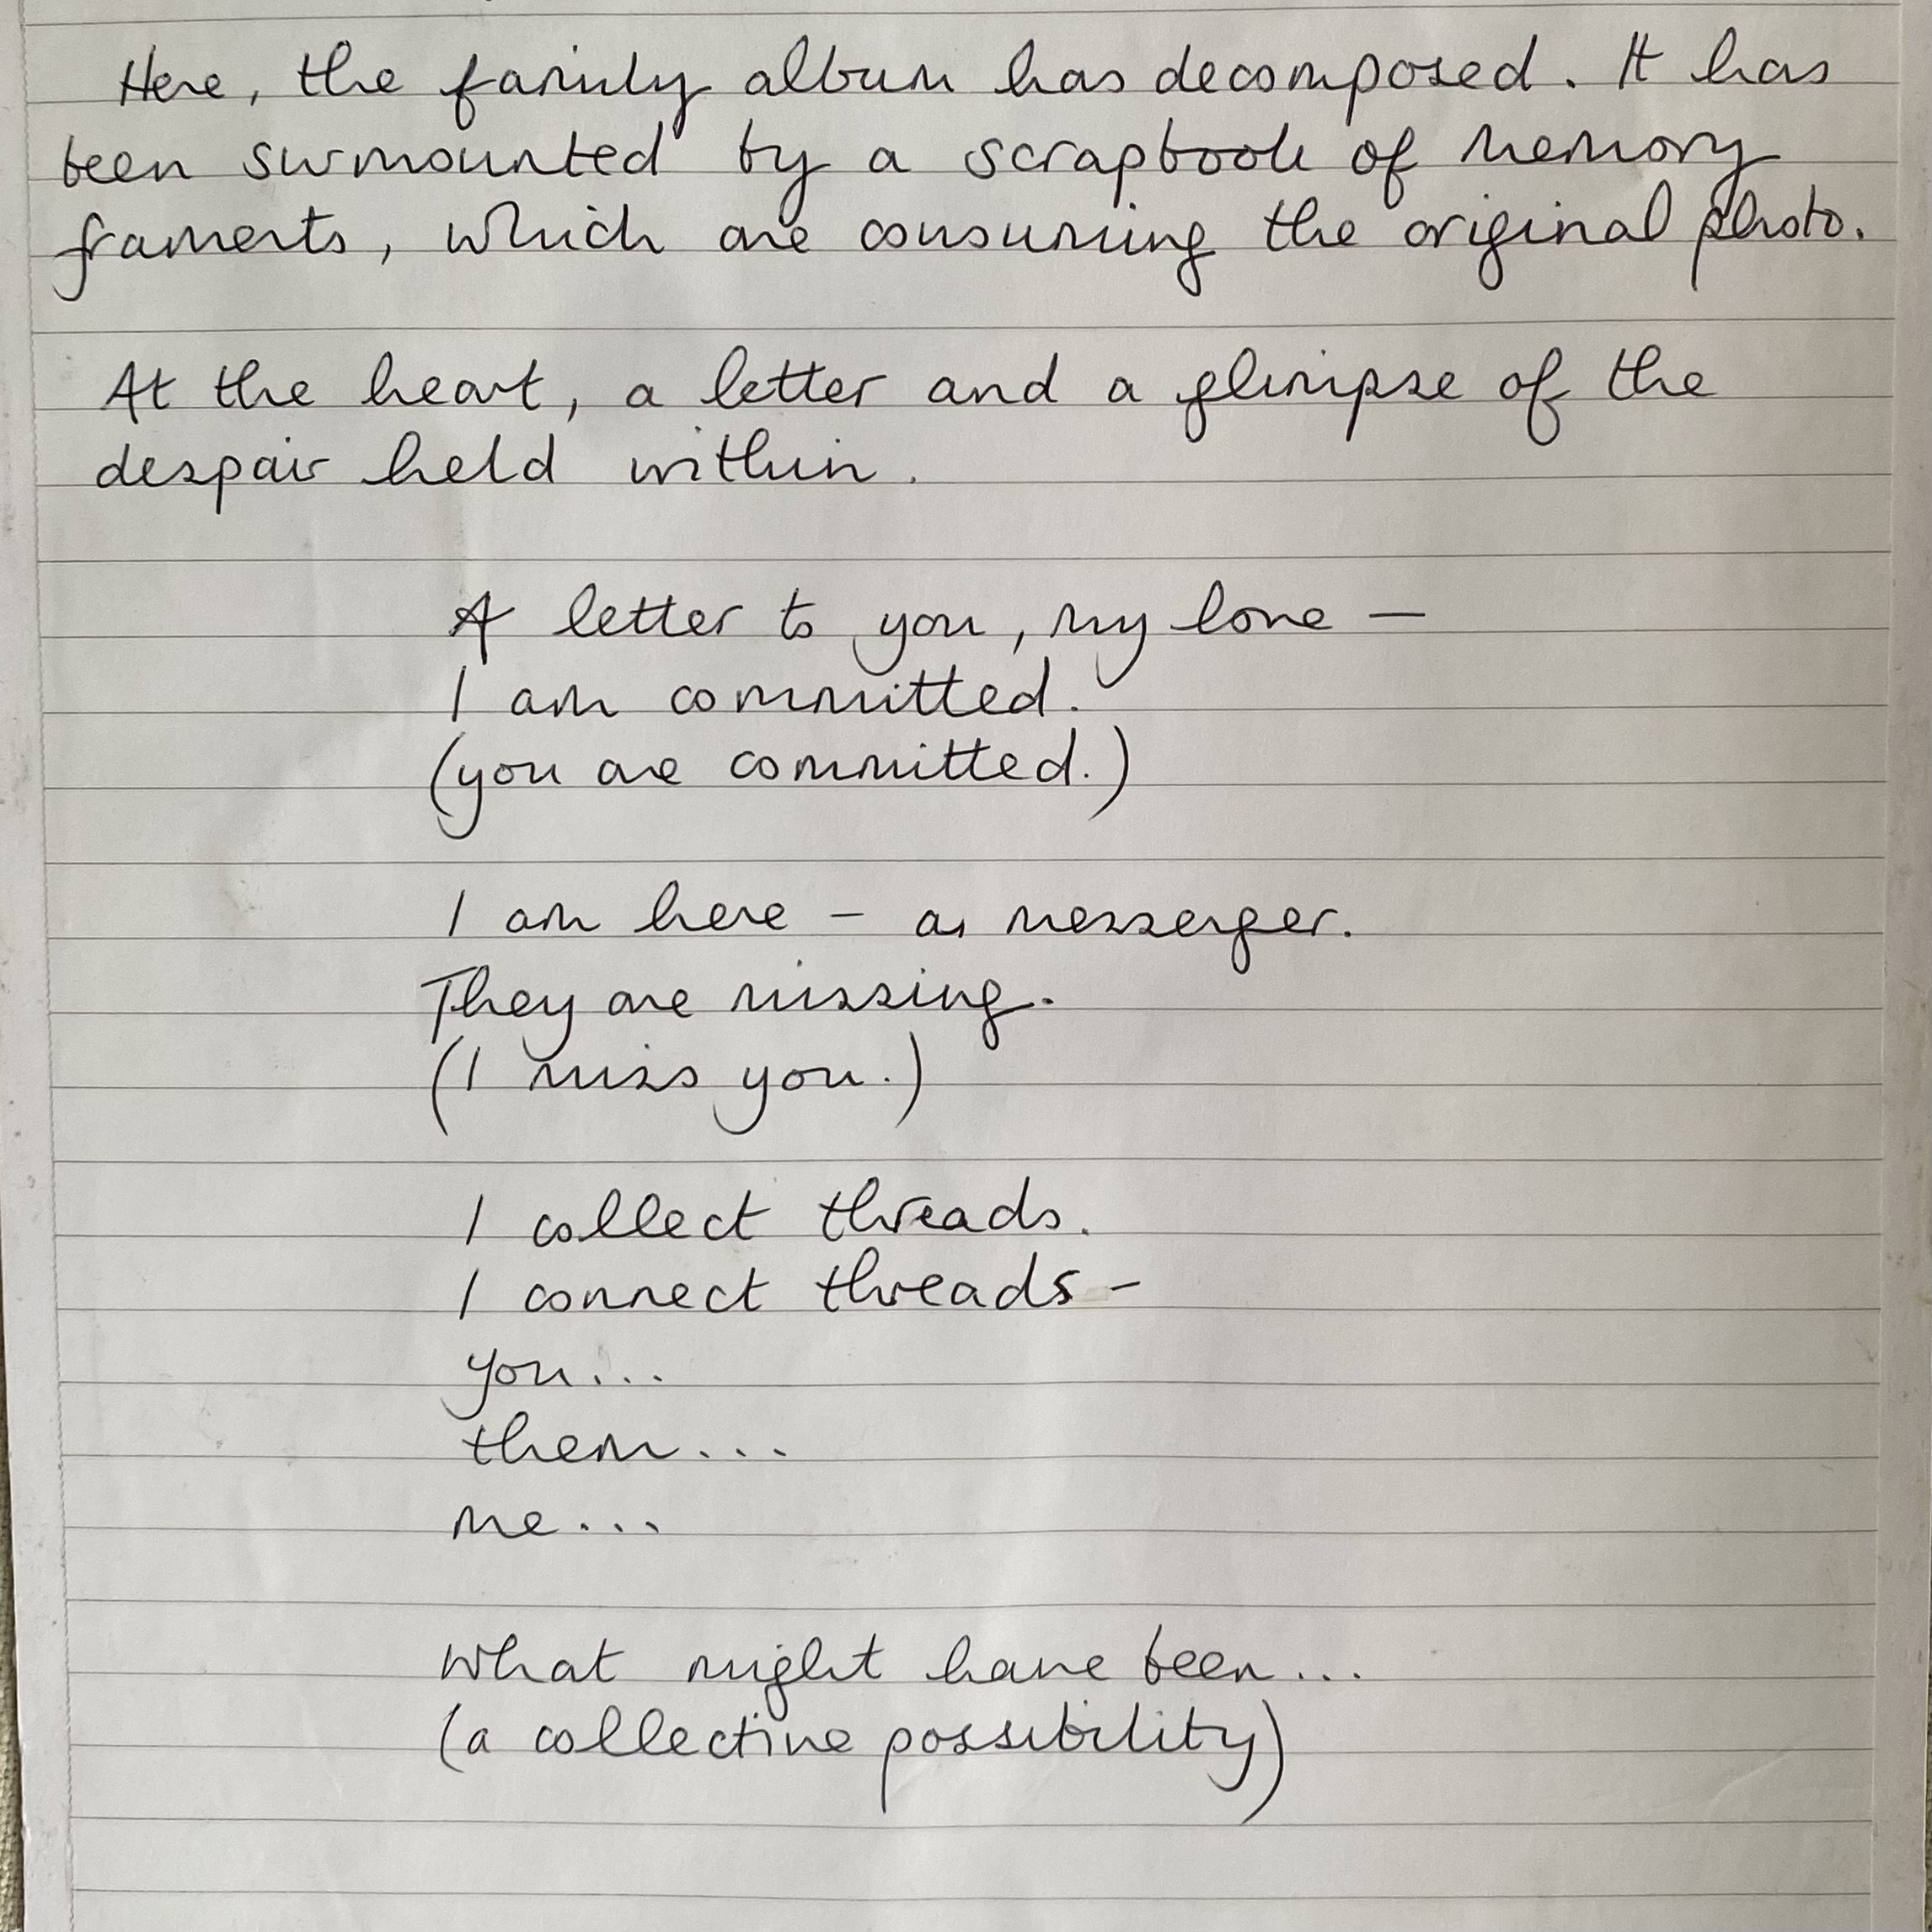 Here, the family album has decomposed. It has
been surmounted by a scrapbook of memory
framents, which are consuming the original photo.
At the heart, a letter and a glimpse of the
despair held within.
A letter to you, my love –
I am committed.
(you are committed.)
I am here – as messenger.
They are missing.
(I miss you.)
I collect threads.
I connect threads –
you...
them...
me...
What might have been...
(a collective possibility)